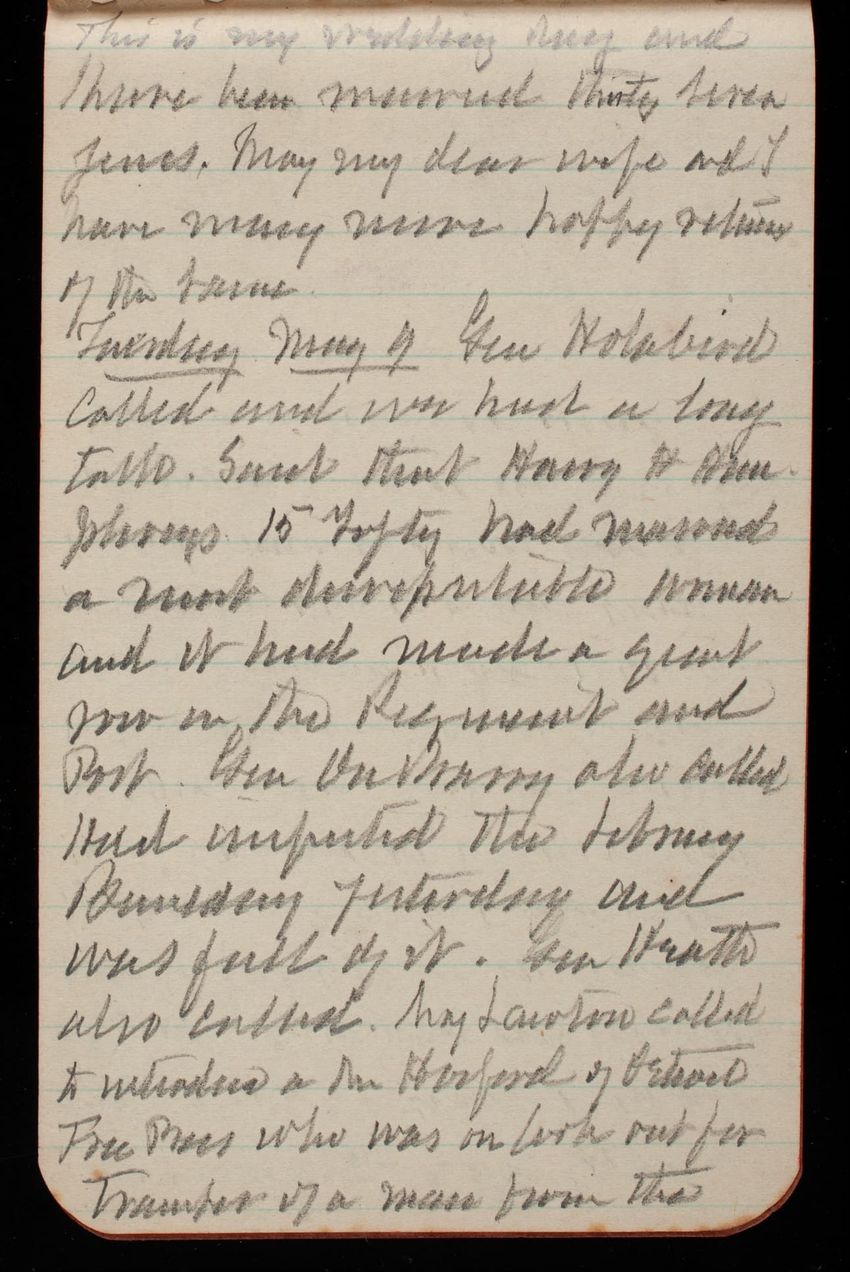 This is my wedding day and
I have been married thirty seven
years. May my dear wife and I
have many more happy returns
of the same
Tuesday May 9 Gen Holabird
called and we had a long
talk. Said that Harry H Hum
phreys 15 Infty had married
a most disreputable woman
and it had made a great
row in the Regiment and
Post. Gen also called
Had inspected the Library
Building yesterday and
was full of it. Gen Heath
also called. Maj Lawton called
to introduce a Mr Hosford of Detroit
Free Press who was on look out for
transfer of a man from the